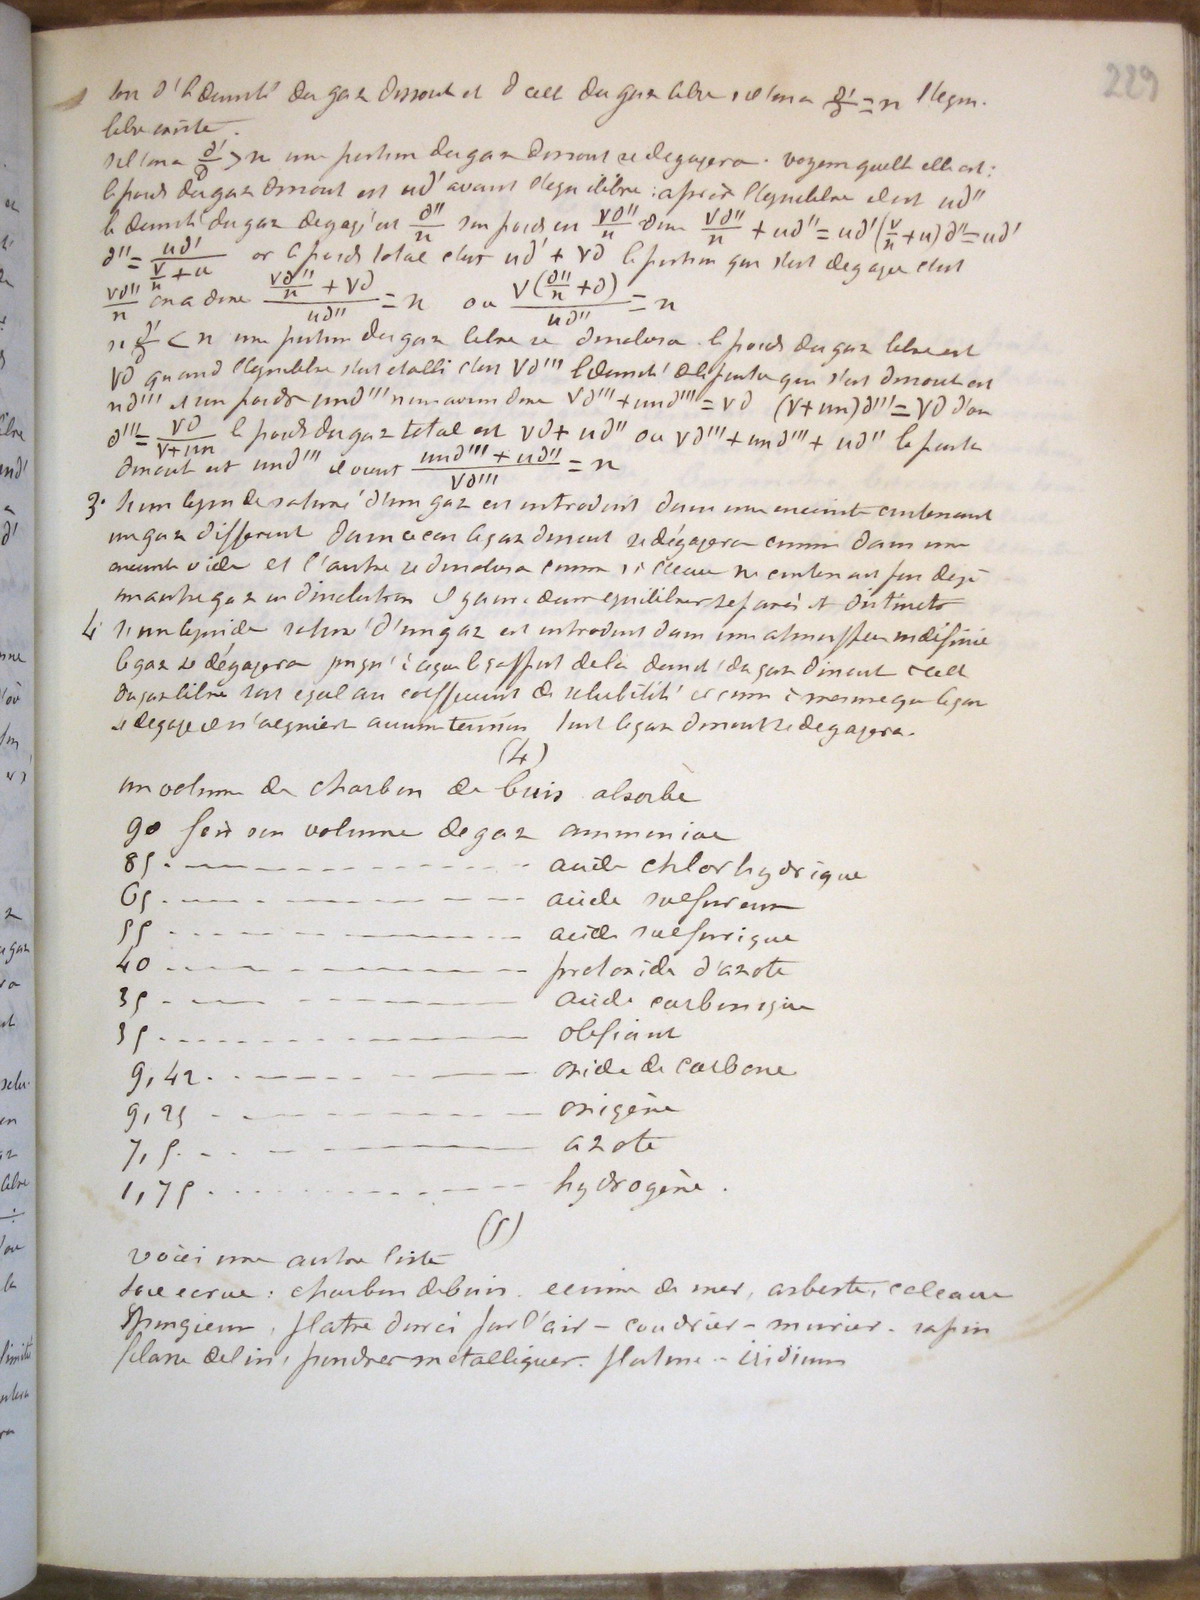 229
d' la densité du gaz dissout et d celle du gaz libre si l'on a d'/d = n l'équi-
libre existe.
si l'on a d'/d > n une portion du gaz dissout se dégagera. voyons quelle elle est:
le poids du gaz dissout est ud' avant l'équilibre: après l'équilibre il est ud''
la densité du gaz dégagé est d''/n son poids est vd''/n donc vd''/n + ud'' = ud' (v/n + u) d'' = ud'
d'' = ud'/(v/n + u) or le poids total c'est ud' + vd la portion qui s'est dégagée c'est
vd''/n on a donc (vd''/n + vd)/ud'' = n ou v(d''/n + d)/ud'' = n
si d'/d < n une portion du gaz libre se dissoudra. le poids du gaz libre est
vd quand l'équilibre s'est établi c'est vd''' la densité de la partie qui s'est dissout est
nd''' et son poids und''' nous avons donc vd''' + und''' = vd (v+un)d''' = vd d'où
d''' = vd/(v+un) le poids du gaz total est vd + ud'' ou vd''' + und''' + ud'' la partie
dissout est und''' il vient (und''' + ud'')/vd''' = n
3° si un liquide saturé d'un gaz est introduit dans une enceinte contenant
un gaz différent dans ce cas le gaz dissout se dégagera comme dans une
enceinte vide et l'autre se dissolvra comme si l'eau ne contenait pas déjà
un autre gaz en dissolution il y aura deux équilibres séparés et distincts
4° si un liquide saturé d'un gaz est introduit dans une atmosphère indéfinie
le gaz se dégagera jusqu'à ce que le rapport de la densité du gaz dissout à celle
du gaz libre soit égal au coefficient de solubilité et comme à mesure que le gaz
se dégage il n'acquiert aucune tension tout le gaz dissout se dégagera.
(4)
un volume de charbon de buis absorbe
90 fois son volume de gaz ammoniac
85 - - - acide chlorhydrique
65 - - - acide sulfureux
55 - - - acide sulfurique
40 - - - protoxide d'azote
35 - - - acide carbonique
35 - - - oléfiant
9,42 - - - oxide de carbone
9,25 - - - oxigène
7,5 - - - azote
1,75 - - - hydrogène.
(5)
voici une autre liste
soie ecrue: charbon de buis. ecume de mer, asbeste, calcaire
spongieux, platre durci par l'air - coudrier - murier. sapin
filasse de lin, poudres métalliques. platine - iridium